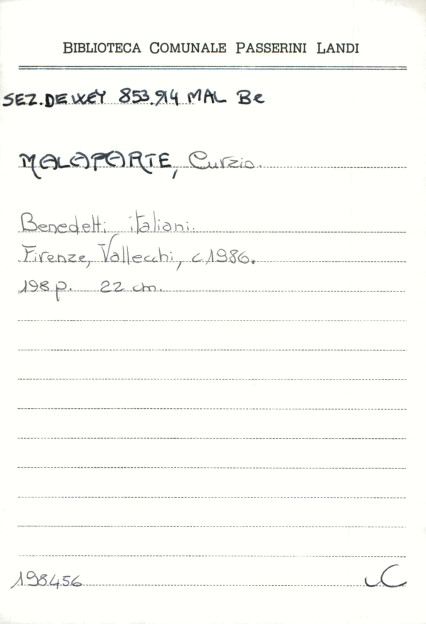 BIBLIOTECA COMUNALE PASSERINI LANDI
SEZ.DEWEY 853.914 MAL Be
MALAPARTE, Curzio.
Benedetti italiani.
Firenze, Vallecchi, c1986.
198 p. 22 cm.
198456